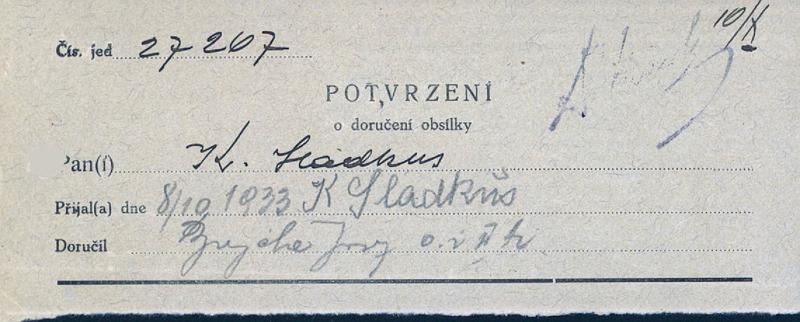 10/X
Čís. jed 27207
POTVRZENÍ
o doručení obsílky
Pan(í) K. Sladkus
Přijal(a) dne 8/10 1933 K Sladkůs
Doručil